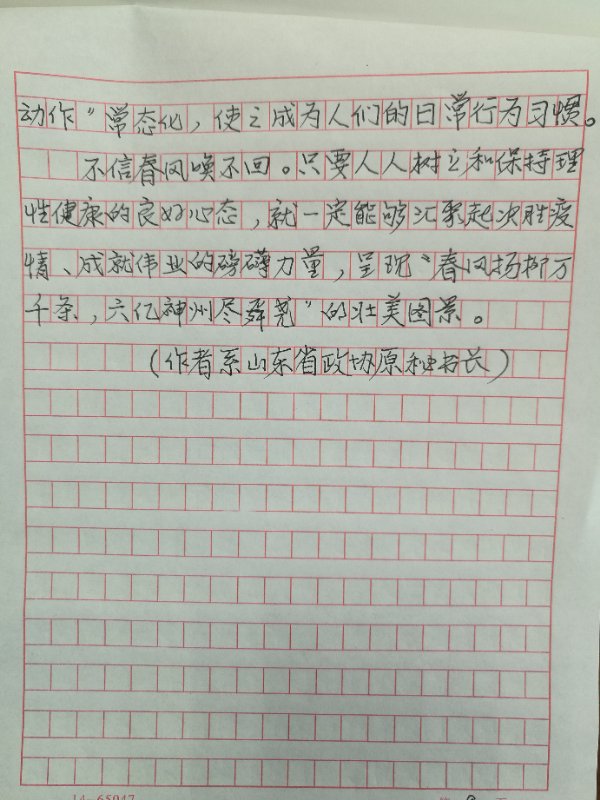 动作”常态化，使之成为人们的日常行为习惯。
不信春风唤不回。只要人人树立和保持理
性健康的良好心态，就一定能够汇聚起决胜疫
情、成就伟业的磅礴力量，呈现“春风扬柳万
千条，六亿神州尽舜尧”的壮美图景。
（作者系山东省政协原秘书长）